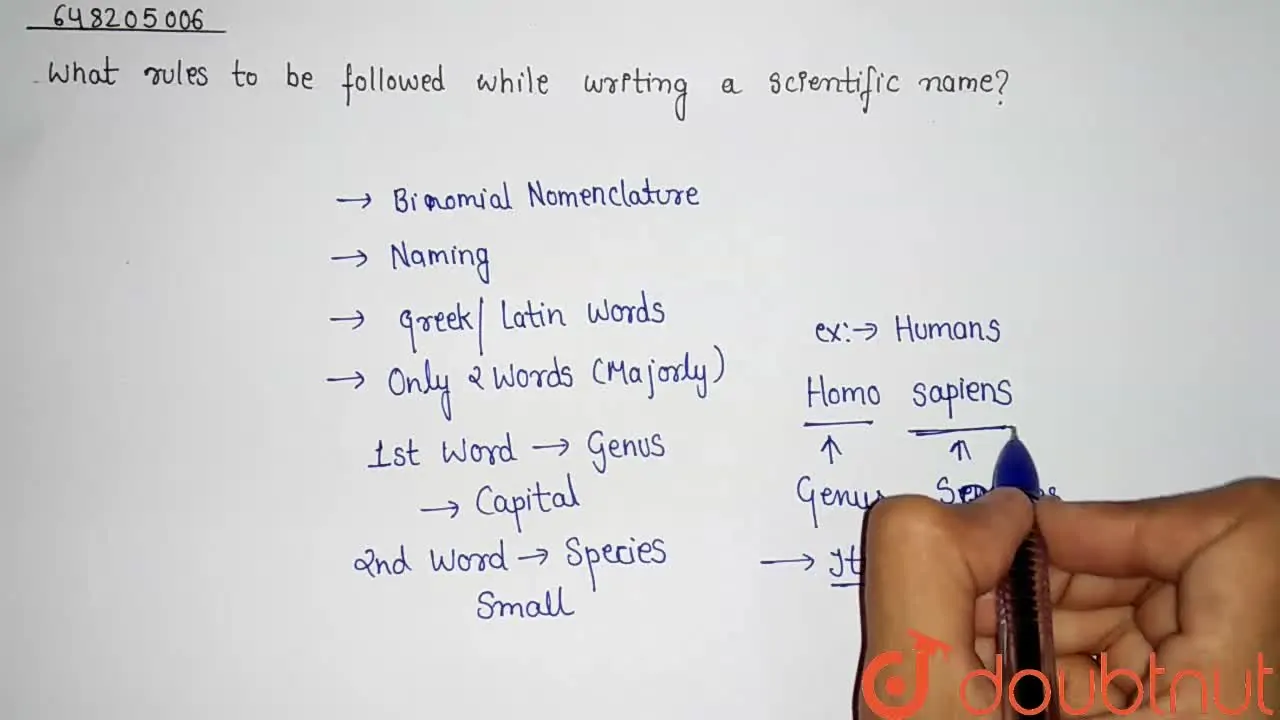 648205006
What rules to be followed while writing a scientific name?
→ Binomial Nomenclature
→ Naming
→ Greek/Latin Words
→ Only 2 Words (Majorly)
1st Word → Genus
→ Capital
2nd Word → Species
Small
ex:→ Humans
Homo sapiens
↑ ↑
Genus
→
doubtnut